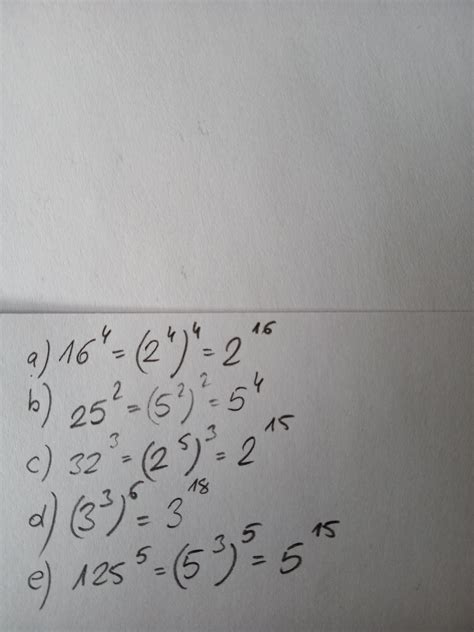 a) 16⁴ = (2⁴)⁴ = 2¹⁶
b) 25² = (5²)² = 5⁴
c) 32³ = (2⁵)³ = 2¹⁵
d) (3³)⁶ = 3¹⁸
e) 125⁵ = (5³)⁵ = 5¹⁵